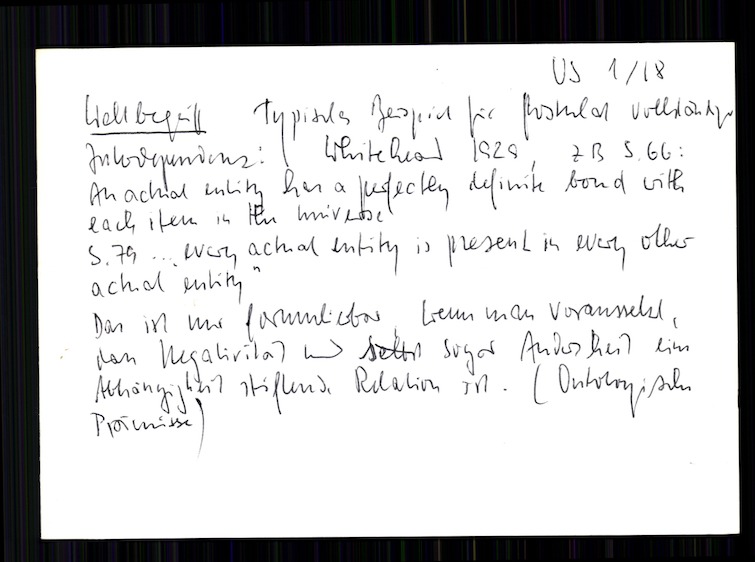 US 1/18
Weltbegriff Typisches Beispiel für Postulat vollständiger
Interdependenz: Whitehead 1929, z B S. 66:
An actual entity has a perfectly definite bond with
each item in the universe
S. 79 ... every actual entity is present in every other
actual entity"
Das ist nur formulierbar, wenn man voraussetzt,
dass Negativität und sogar Andersheit eine
Abhängigkeit stiftende Relation ist. (Ontologische
Prämisse)